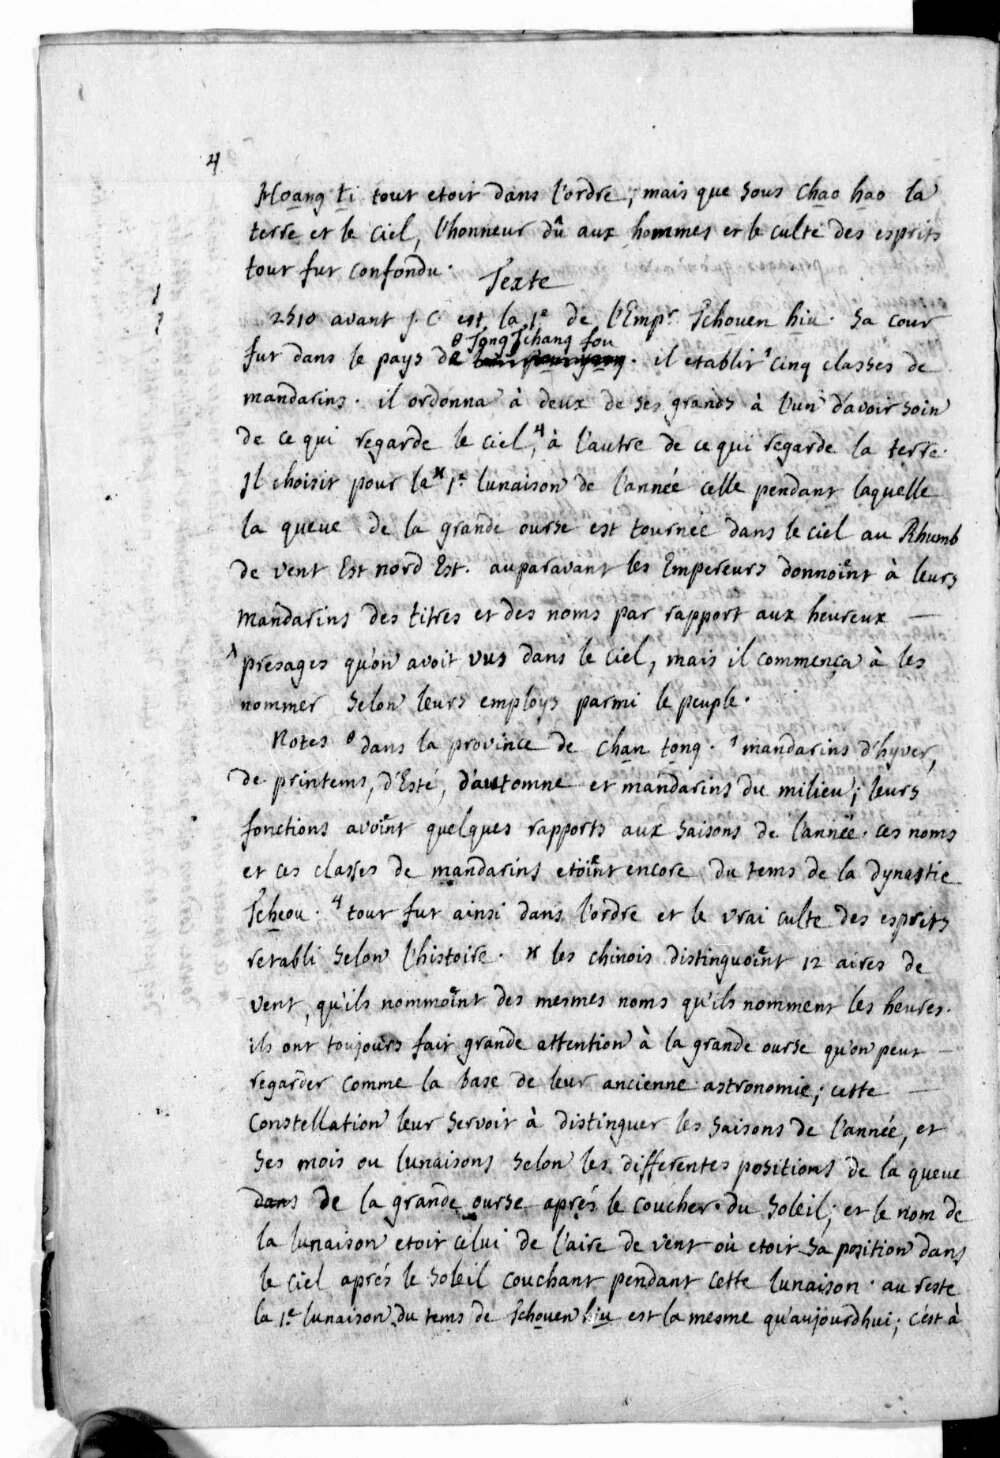 4
Hoang ti tout etoit dans l'ordre, mais que sous chao hao la
terre et le ciel, l'honneur dû aux hommes et le culte des esprits
tout fut confondu.
Texte
2510 avant J. C est la 1e de l'Empr Tchouen hiu. Sa cour
θ Tong Tchang fou
fut dans le pays de . il etablit 1 cinq classes de
mandarins. il ordonna à deux de ses grands à l'un d'avoir soin
de ce qui regarde le ciel, 4 à l'autre de ce qui regarde la terre.
Il choisit pour la x 1e lunaison de l'année celle pendant laquelle
la queue de la grande ourse est tournée dans le ciel au Rhumb
de vent Est nord Est. auparavant les Empereurs donnoint à leurs
mandarins des titres et des noms par rapport aux heureux
presages qu'on avoit vus dans le ciel, mais il commença à les
nommer selon leurs employs parmi le peuple.
Notes θ dans la province de chan tong. 1 mandarins d'hyver,
de printems, d'Esté, d'automne et mandarins du milieu; leurs
fonctions avoint quelques rapports aux saisons de l'année. ces noms
et ces classes de mandarins etoint encore du tems de la dynastie
Tcheou. 4 tout fut ainsi dans l'ordre et le vrai culte des esprits
retabli selon l'histoire. x les chinois distinguoint 12 aires de
vent, qu'ils nommoint des mesmes noms qu'ils nomment les heures.
ils ont toujours fait grande attention à la grande ourse qu'on peut
regarder comme la base de leur ancienne astronomie; cette
Constellation leur servoit à distinguer les saisons de l'année, et
ses mois ou lunaisons selon les differentes positions de la queue
dans de la grande ourse aprés le coucher du Soleil; et le nom de
la lunaison etoit celui de l'aire de vent où etoit sa position dans
le ciel aprés le Soleil couchant pendant cette lunaison. au reste
la 1e lunaison du tems de Tchouen hiu est la mesme qu'aujourdhui; c'est à